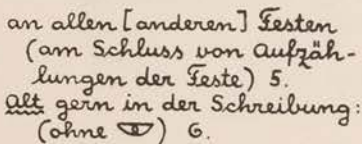 an allen [anderen] Festen
(am Schluss von Aufzäh-
lungen der Feste) 5.
Alt gern in der Schreibung:
(ohne ) 6.